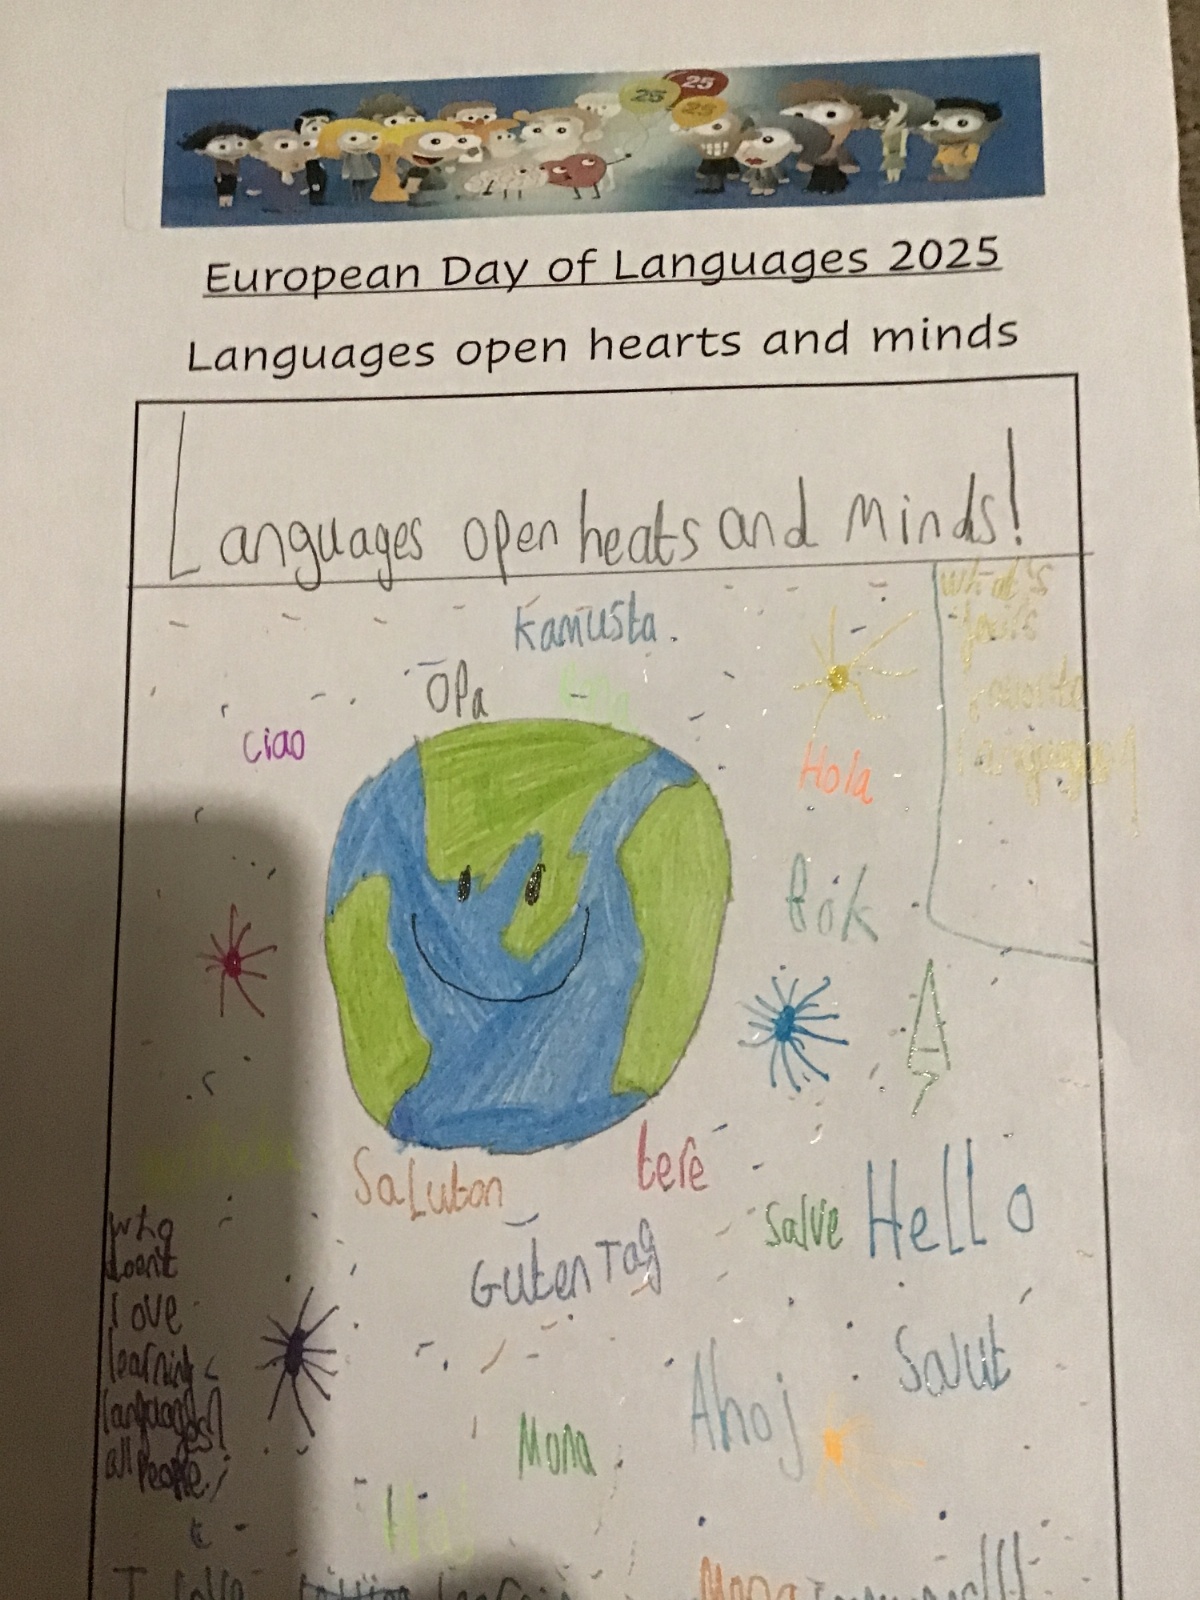 25
25
25
European Day of Languages 2025
Languages open hearts and minds
Languages open heats and minds!
what's
Kamusta.
Opa
ciao
Hola
Bok
Saluton
tere
salve Hello
Guten Tag
who
doent
love
learning
languages
all people
Salut
Ahoj
Mona
Haj
Mona